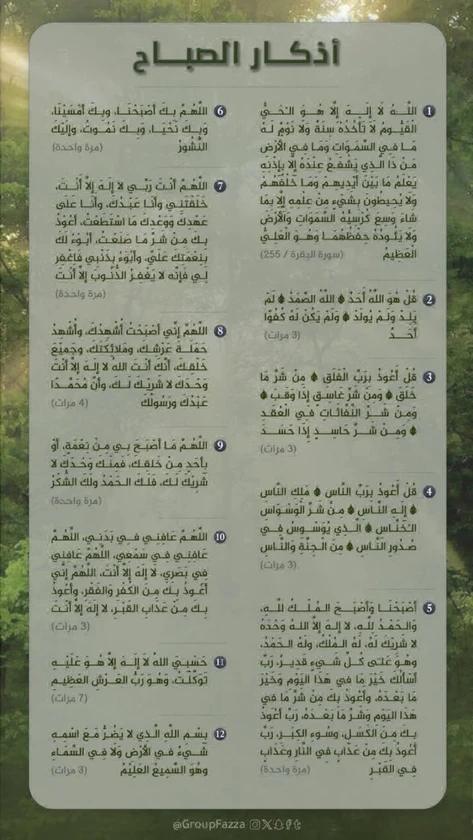 أذكار الصباح
1 اللَّهُ لَا إِلَـهَ إِلَّا هُـوَ الْحَـيُّ
الْقَيُّـومُ لَا تَأْخُذُهُ سِنَةٌ وَلَا نَوْمٌ لَهُ
مَا فِي السَّمَوَاتِ وَمَا فِي الْأَرْضِ
مَن ذَا الَّذِي يَشْفَعُ عِنْدَهُ إِلَّا بِإِذْنِهِ
يَعْلَمُ مَا بَيْنَ أَيْدِيهِمْ وَمَا خَلْفَهُمْ
وَلَا يُحِيطُونَ بِشَيْءٍ مِنْ عِلْمِهِ إِلَّا بِمَا
شَاءَ وَسِعَ كُرْسِيُّهُ السَّمَوَاتِ وَالْأَرْضَ
وَلَا يَئُودُهُ حِفْظُهُمَا وَهُـوَ الْعَلِـيُّ
الْعَظِيمُ (سورة البقرة / 255)
2 قُلْ هُوَ اللَّهُ أَحَدٌ ۝ اللَّهُ الصَّمَدُ ۝ لَمْ
يَلِدْ وَلَمْ يُولَدْ ۝ وَلَمْ يَكُن لَّهُ كُفُوًا
أَحَـــدٌ (3 مرات)
3 قُلْ أَعُوذُ بِرَبِّ الْفَلَقِ ۝ مِن شَرِّ مَا
خَلَقَ ۝ وَمِن شَرِّ غَاسِقٍ إِذَا وَقَبَ ۝
وَمِـن شَــرِّ النَّفَّاثَاتِ فِي الْعُقَدِ
۝ وَمِـن شَـرِّ حَاسِـدٍ إِذَا حَسَـدَ
(3 مرات)
4 قُلْ أَعُوذُ بِرَبِّ النَّاسِ ۝ مَلِكِ النَّاسِ
۝ إِلَهِ النَّاسِ ۝ مِن شَرِّ الْوَسْوَاسِ
الْخَنَّاسِ ۝ الَّـذِي يُوَسْـوِسُ فِـي
صُدُورِ النَّاسِ ۝ مِنَ الْجِنَّةِ وَالنَّاسِ
(3 مرات)
5 أَصْبَحْنَا وَأَصْبَحَ المُـلْـكُ للهِ،
وَالْحَمْدُ للهِ، لا إِلَهَ إِلَّا اللهُ وَحْدَهُ
لا شَرِيْكَ لَهُ، لَهُ الـمُلْكُ، وَلَهُ الـحَمْدُ،
وَهُوَ عَلَى كُلِّ شَيْءٍ قَدِيرٌ، رَبِّ
أَسْأَلُكَ خَيْرَ مَا فِي هَذَا اليَوْمِ وَخَيْرَ
مَا بَعْدَهُ، وَأَعُوذُ بِكَ مِنْ شَرِّ مَا فِي
هَذَا اليَوْمِ وَشَرِّ مَا بَعْدَهُ، رَبِّ أَعُوذُ
بِكَ مِنَ الكَسَلِ، وَسُوءِ الكِبَرِ، رَبِّ
أَعُوذُ بِكَ مِنْ عَذَابٍ فِي النَّارِ وَعَذَابٍ
فِي القَبْرِ (مرة واحدة)
6 اللَّهُمَّ بِكَ أَصْبَحْنَا، وَبِكَ أَمْسَيْنَا،
وَبِكَ نَحْيَا، وَبِكَ نَمُـوتُ، وَإِلَيْكَ
النُّشُورُ (مرة واحدة)
7 اللَّهُمَّ أَنْتَ رَبِّي لا إِلَهَ إِلَّا أَنْتَ،
خَلَقْتَنِي وَأَنَا عَبْدُكَ، وَأَنَا عَلَى
عَهْدِكَ وَوَعْدِكَ مَا اسْتَطَعْتُ، أَعُوذُ
بِكَ مِنْ شَرِّ مَا صَنَعْتُ، أَبُوْءُ لَكَ
بِنِعْمَتِكَ عَلَيَّ، وَأَبُوْءُ بِذَنْبِي فَاغْفِرْ
لِي فَإِنَّهُ لا يَغْفِرُ الذُّنُوبَ إِلَّا أَنْتَ
(مرة واحدة)
8 اللَّهُمَّ إِنِّي أَصْبَحْتُ أُشْهِدُكَ، وَأُشْهِدُ
حَمَلَـةَ عَرْشِكَ، وَمَلائِكَتَكَ، وَجَمِيْعَ
خَلْقِكَ، أَنَّكَ أَنْتَ اللهُ لا إِلَهَ إِلَّا أَنْتَ
وَحْدَكَ لا شَرِيْكَ لَكَ، وَأَنَّ مُحَمَّدًا
عَبْدُكَ وَرَسُولُكَ (4 مرات)
9 اللَّهُمَّ مَا أَصْبَحَ بِي مِنْ نِعْمَةٍ، أَوْ
بِأَحَدٍ مِنْ خَلْقِكَ، فَمِنْكَ وَحْدَكَ لا
شَرِيكَ لَكَ، فَلَكَ الحَمْدُ وَلَكَ الشُّكْرُ
(مرة واحدة)
10 اللَّهُمَّ عَافِنِي فِي بَدَنِي، اللَّهُمَّ
عَافِنِي فِي سَمْعِي، اللَّهُمَّ عَافِنِي
فِي بَصَرِي، لا إِلَهَ إِلَّا أَنْتَ، اللَّهُمَّ إِنِّي
أَعُوذُ بِكَ مِنَ الكُفْرِ وَالفَقْرِ، وَأَعُوذُ
بِكَ مِنْ عَذَابِ القَبْرِ، لا إِلَهَ إِلَّا أَنْتَ
(3 مرات)
11 حَسْبِيَ اللهُ لا إِلَـهَ إِلَّا هُـوَ عَلَيْـهِ
تَوَكَّلْتُ، وَهُوَ رَبُّ العَرْشِ العَظِيْمِ
(7 مرات)
12 بِسْمِ اللَّهِ الَّذِي لَا يَضُرُّ مَعَ اسْمِهِ
شَيْءٌ فِي الْأَرْضِ وَلَا فِي السَّمَاءِ
وَهُوَ السَّمِيعُ العَلِيْمُ (3 مرات)
@GroupFazza